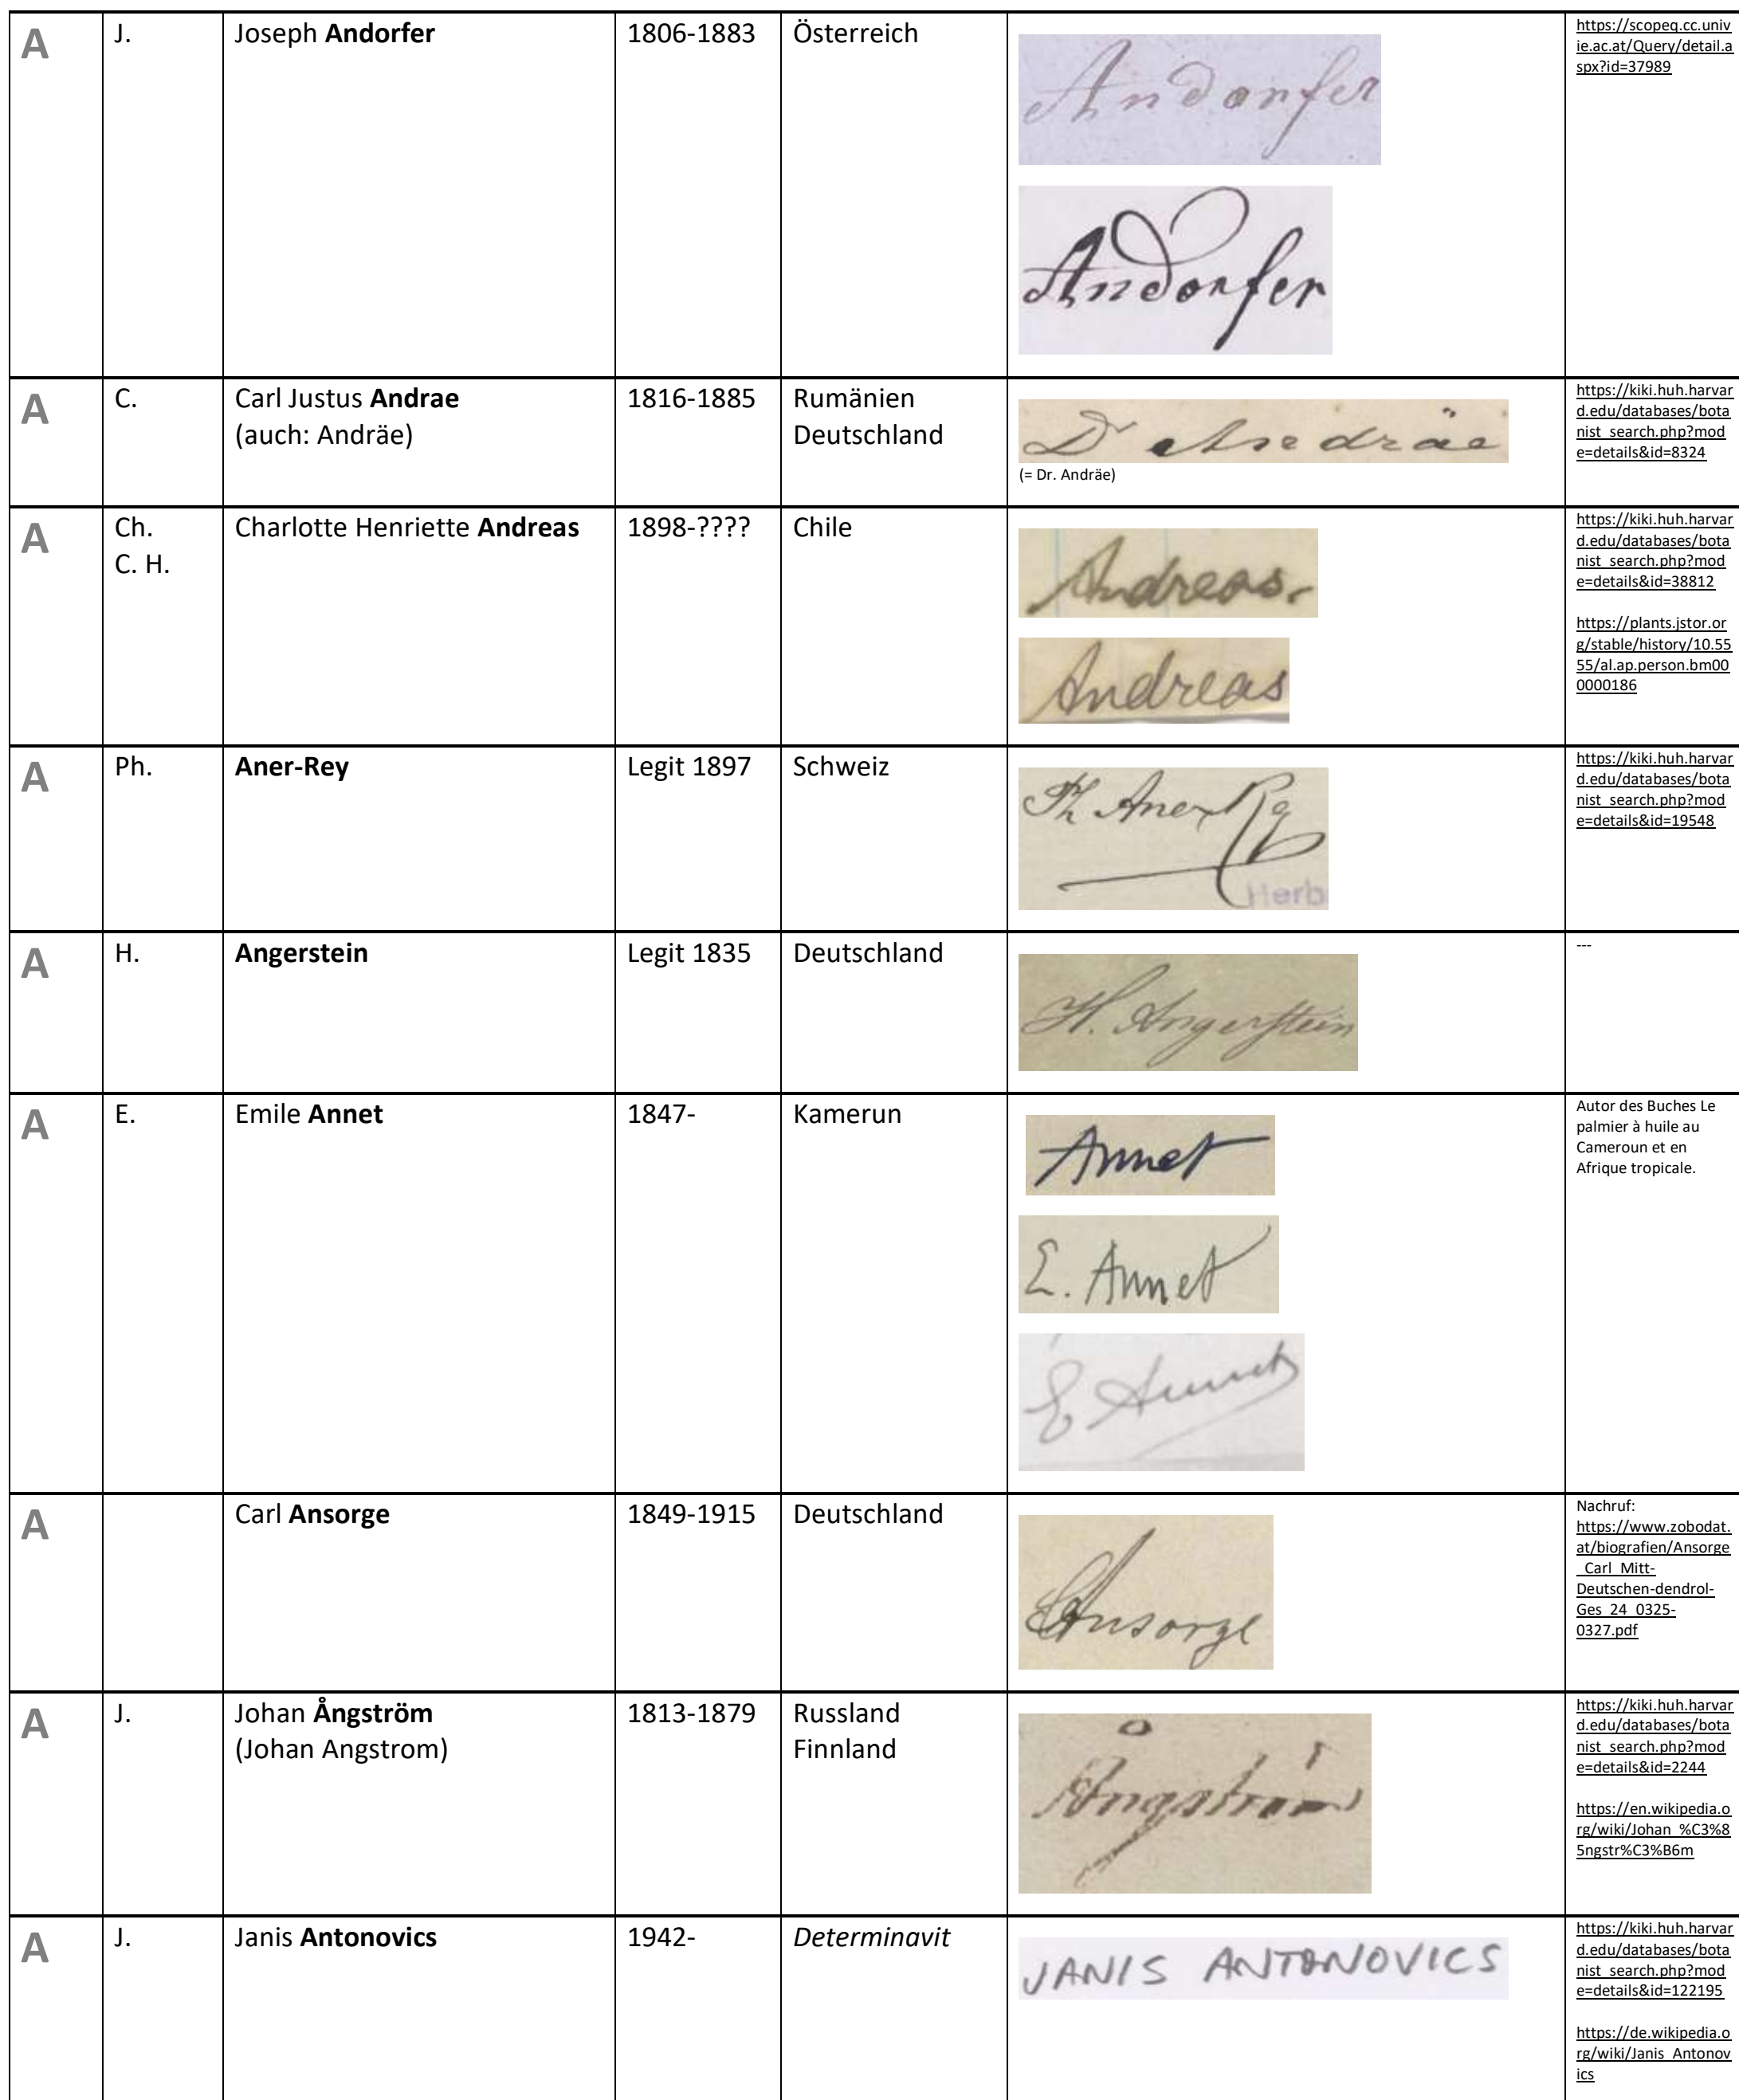 A
J.
Joseph Andorfer
1806-1883
Österreich
Andorfer
Andorfer
https://scopeq.cc.univ
ie.ac.at/Query/detail.a
spx?id=37989
A
C.
Carl Justus Andrae
(auch: Andräe)
1816-1885
Rumänien
Deutschland
Dr Andräe
(= Dr. Andräe)
https://kiki.huh.harvar
d.edu/databases/bota
nist_search.php?mod
e=details&id=8324
A
Ch.
C. H.
Charlotte Henriette Andreas
1898-????
Chile
Andreas.
Andreas
https://kiki.huh.harvar
d.edu/databases/bota
nist_search.php?mod
e=details&id=38812
https://plants.jstor.or
g/stable/history/10.55
55/al.ap.person.bm00
0000186
A
Ph.
Aner-Rey
Legit 1897
Schweiz
Ph Aner-Rey
Herb
https://kiki.huh.harvar
d.edu/databases/bota
nist_search.php?mod
e=details&id=19548
A
H.
Angerstein
Legit 1835
Deutschland
H. Angerstein
---
A
E.
Emile Annet
1847-
Kamerun
Annet
E. Annet
E Annet
Autor des Buches Le
palmier à huile au
Cameroun et en
Afrique tropicale.
A
Carl Ansorge
1849-1915
Deutschland
CAnsorge
Nachruf:
https://www.zobodat.
at/biografien/Ansorge
_Carl_Mitt-
Deutschen-dendrol-
Ges_24_0325-
0327.pdf
A
J.
Johan Ångström
(Johan Angstrom)
1813-1879
Russland
Finnland
Ångström
https://kiki.huh.harvar
d.edu/databases/bota
nist_search.php?mod
e=details&id=2244
https://en.wikipedia.o
rg/wiki/Johan_%C3%8
5ngstr%C3%B6m
A
J.
Janis Antonovics
1942-
Determinavit
JANIS ANTONOVICS
https://kiki.huh.harvar
d.edu/databases/bota
nist_search.php?mod
e=details&id=122195
https://de.wikipedia.o
rg/wiki/Janis_Antonov
ics